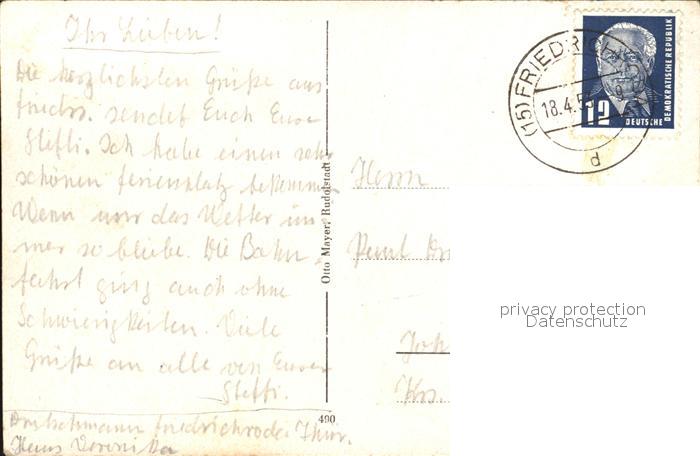 Ihr Lieben!
Die herzlichsten Grüße aus
Friedr. sendet Euch Eure
Steffi. Ich habe einen sehr
schönen Ferienplatz bekommen.
Wenn nur das Wetter im-
mer so bliebe. Die Bahn-
fahrt ging auch ohne
Schwierigkeiten. Viele
Grüße an alle von Eurer
Steffi.
Friedrichroda Thür.
Haus Veronika
Otto Mayer, Rudolstadt
490
(15) FRIEDRICH
18.4.5
d
12 DEUTSCHE
DEMOKRATISCHE REPUBLIK
Herrn
Paul
Krs.
privacy protection
Datenschutz